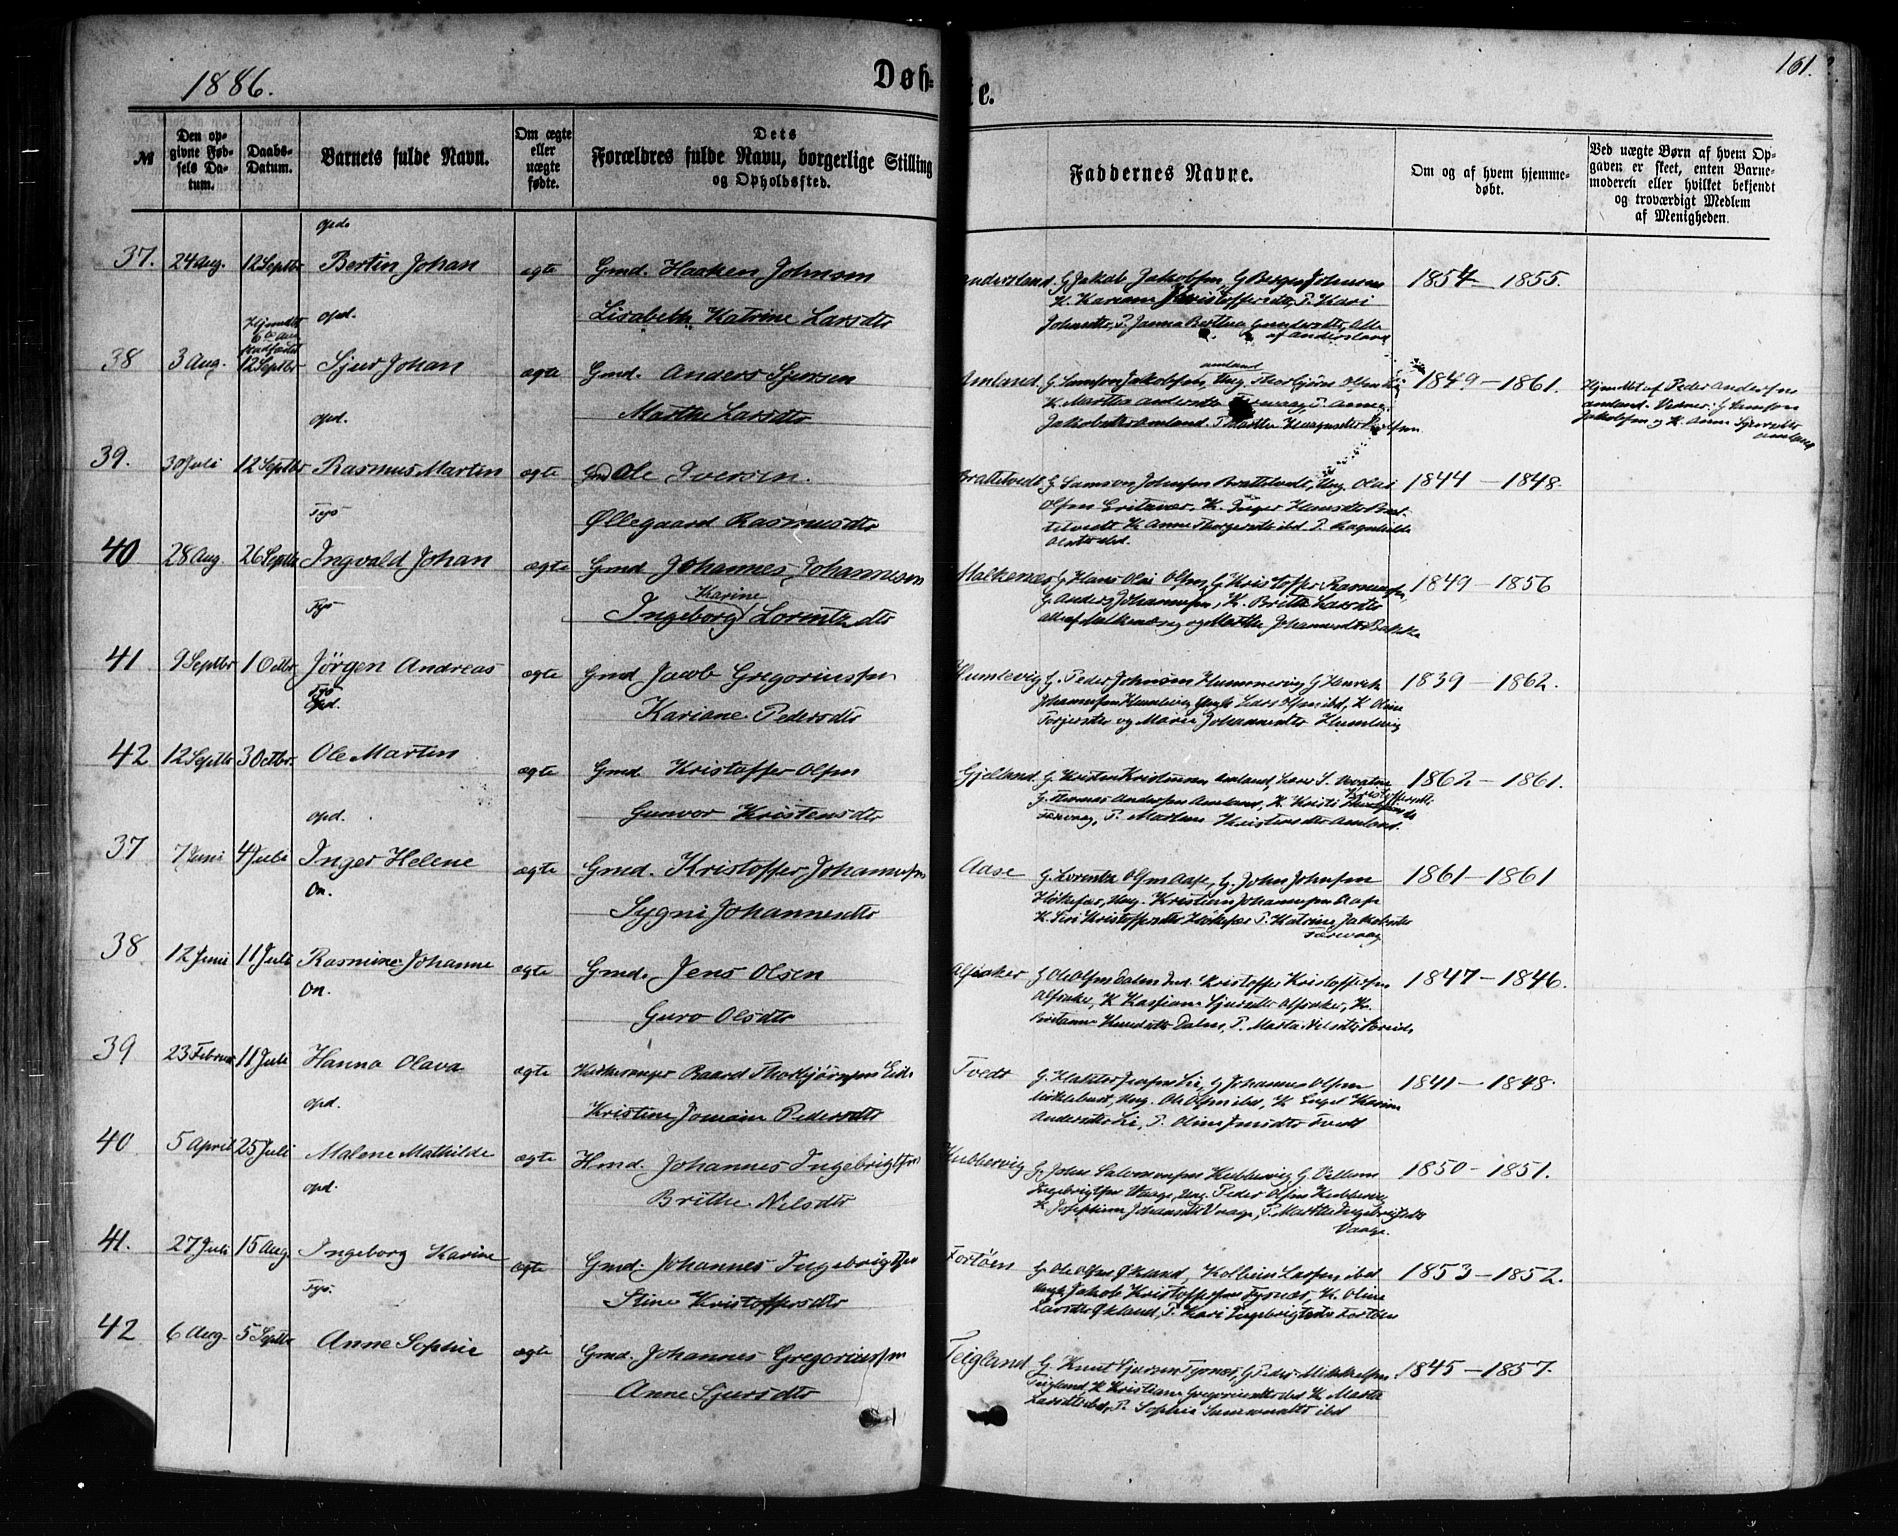 1886.
Døb-
te.
161.
№
Den op-
givne Fød-
sels Da-
tum.
Daabs-
Datum.
Barnets fulde Navn.
Om ægte
eller
uægte
fødte.
Dets
Forældres fulde Navn, borgerlige Stilling
og Opholdssted.
Faddernes Navne.
Om og af hvem hjemme-
døbt.
Ved uægte Børn af hvem Op-
gaven er skeet, enten Barne-
moderen eller hvilket bekjendt
og troværdigt Medlem
af Menigheden.
opd.
37. 24 Aug. 12 Septbr Bertin Johan ægte Gmd. Haaken Johnsen
Lisabeth Katrine Larsdtr
Andersland G. Jakob Jakobsen, G. Johnsen 1854 – 1855.
Johnsdtr, P. Janna Bertha Alle
af Andersland
opd.
Hjemdbt
38 3 Aug. 12 Septbr Sjur Johan ægte Gmd. Anders Sjursen
Marthe Larsdtr
Amland G. Samson Jakobsen, Ung. Thorbjørn Olsen 1849 – 1861.
Amland
K. Martha Andersdtr P. Anne
Jakobsdtr Amland. P. Marthe
Hjemdbt af Peder Andersen
Amland. Vidner: G. Samson
Jakobsen og K. Anne Sjursdtr
Amland
opd.
39. 30 Juli 12 Septbr Rasmus Martin ægte Gmd Ole Iversen.
Øllegaard Rasmusdtr
Brattetvedt G. Samson Johnsen Brattetvedt, Ung. Olai 1844 – 1848.
Olsen K. Inger
K. Anne ibd P. Ragnhilde
Olsdtr ibd.
Tys
40 28 Aug 26 Septbr Ingvald Johan ægte Gmd Johannes Johannesen
Karine
Ingeborg Lorentzdtr
Malkenæs G. Hans Olai Olsen, G. Kristoffer Rasmussen, 1849 – 1856
G. Anders Johannesen, K. Brithe Larsdtr
alle af Malkenæs og Marthe Johannesdtr Bakke
Tys
41 9 Septbr 1 Octbr Jørgen Andreas ægte Gmd Jacob Gregoriussen
Kariane Pedersdtr
Humlevig G. Peder Johnsen Hummervig G. Henrik 1839 – 1862.
Johannesen Humlevig Lars Olsen ibd, K. Oline
og Marie Johannesdtr Humlevig
Tys
Opd.
42 12 Septbr 3 Octbr. Ole Martin ægte Gmd. Kristoffer Olsen
Gunvor Kristensdtr
Gjelland G. Kristen Kristensen Amland, 1862 – 1861.
G. Thomas Andersen Amland, K. Kristi Kristoffersdtr
P. Marthe Kristensdtr Amland.
opd.
37 7 Juni 4 Juli Inger Helene ægte Gmd. Kristoffer Johannessen
Sygni Johannesdtr
Aase G. Lorentz Olsen Aase, G. John Johnsen 1861 – 1861
Ung. Kristian Johannesen Aase
K. Siri Kristoffersdtr P. Katrine Jakobsdtr
On.
38 12 Juni 11 Juli Rasmine Johanne ægte Gmd. Jens Olsen
Guro Olsdtr
Alsaker G. Ole Olsen Dalen Ind. Kristoffer Kristoffersen 1847 – 1846.
Alsaker, K. Kristiane Sjursdtr Alsaker, K.
Knudsdtr Dalen, P. Marta Nilsdtr
On.
39 23 Februar 11 Juli Hanna Olava ægte Kirkesanger Baard Thorbjørnsen Eide
Kristine Pedersdtr
Tvedt G. Jensen Lie, G. Johannes Olsen 1841 – 1848.
Ung. Ole Olsen ibd, K. Engel Karine
Andersdtr Lie, P. Oline Jensdtr Tvedt
opd.
40 5 April 25 Juli Malene Mathilde ægte Hmd. Johannes Ingebrigtsen
Brithe Nilsdtr
Hubbervig G. John Salomonsen Hubbervig G. Vellom 1850 – 1851.
Ingebrigtsen Vaage, Ung. Peder Olsen Hubbervig
K. Josephine Johansdtr Vaage, P. Marthe Ingebrigtsdtr
Vaage.
opd.
41. 27 Juli 15 Aug. Ingeborg Karine ægte Gmd. Johannes Ingebrigtsen
Stine Kristoffersdtr
Fortøen G. Ole Olsen Økland, Kolbein Larsen ibd 1853 – 1852.
Ungk Jakob Kristoffersen Tysnæs, K. Oline
Larsdtr Økland, P. Kari Ingebrigtsdtr Fortøen
Tys.
42 6 Aug. 5 Septbr Anne Sophie ægte Gmd. Johannes Gregoriussen
Anne Sjursdtr
Teigland G. Knut Sjursen Tysnæs, G. Peder Mikkelsen 1845 – 1857.
Teigland, K. Kristiane Gregoriusdtr ibd K. Marta
Larsdtr ibd, P. Sophie Simonsdtr ibd